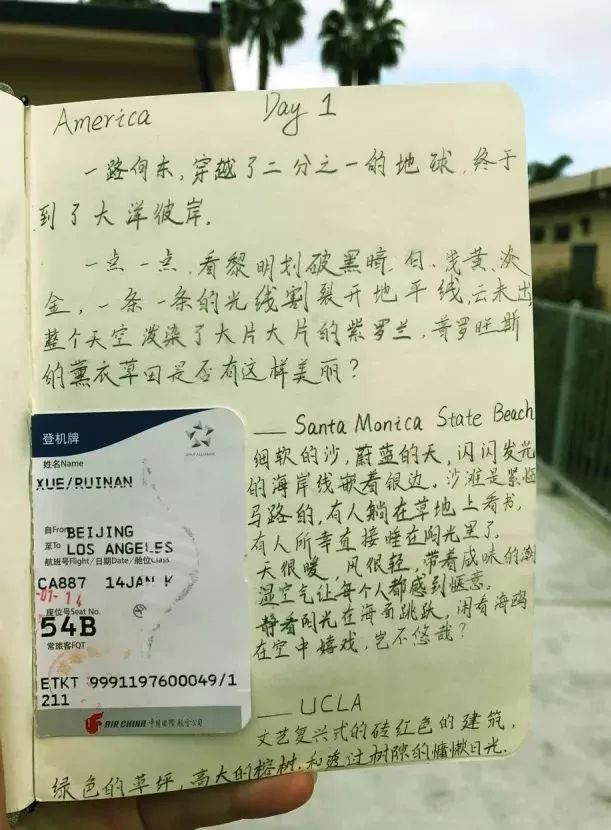 America Day 1
一路向东,穿越了二分之一的地球,终于
到了大洋彼岸。
一点一点,看黎明划破黑暗,白、浅黄、淡
金,一条一条的光线割裂开地平线,云朵出
整个天空泼染了大片大片的紫罗兰,普罗旺斯
的薰衣草田是否有这样美丽?
——Santa Monica State Beach
细软的沙,蔚蓝的天,闪闪发光
的海岸线嵌着银边,沙滩是紧
马路的,有人躺在草地上看书,
有人所幸直接睡在阳光里了。
天很暖,风很轻,带着咸味的潮
湿空气让每个人都感到惬意。
静看阳光在海面跳跃,闲看海鸥
在空中嬉戏,岂不悠哉?
——UCLA
文艺复兴式的砖红色的建筑,
绿色的草坪,高大的榕树,和透过树隙的慵懒日光。
登机牌
STAR ALLIANCE
姓名Name
XUE/RUINAN
自From BEIJING
至To LOS ANGELES
航班号Flight/日期Date/舱位Class
CA887 14JAN K
座位号Seat No.
54B
常旅客FQT
ETKT 9991197600049/1
211
AIR CHINA 中国国际航空公司